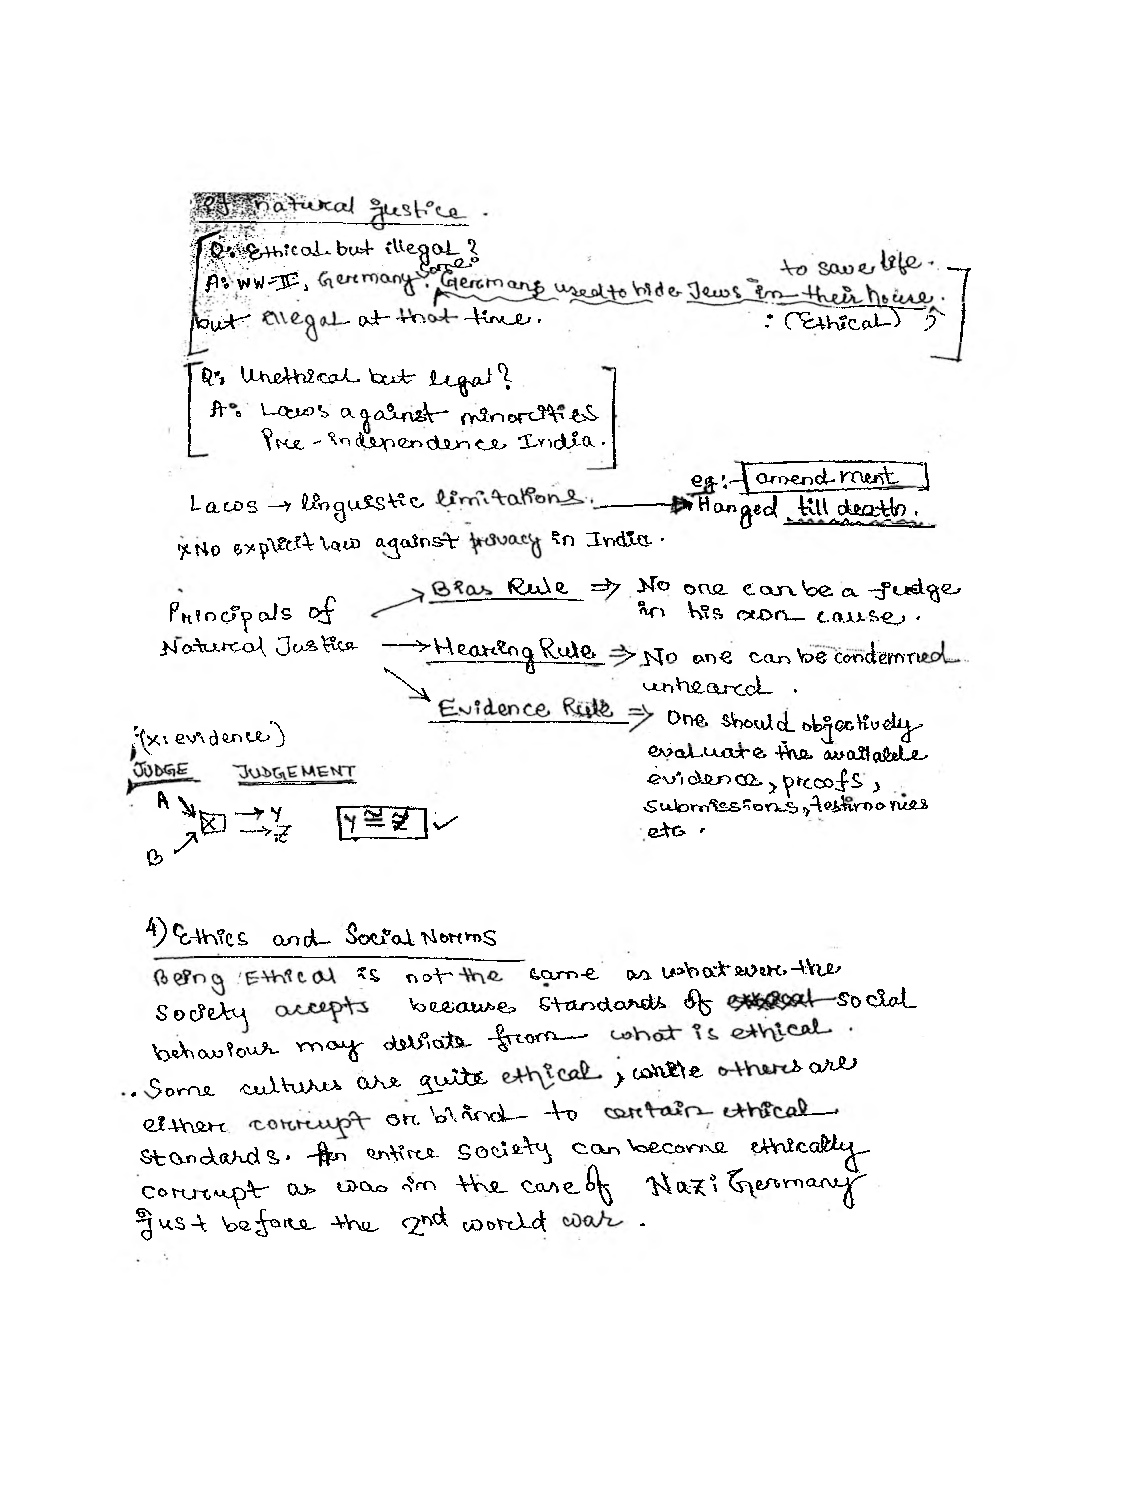 of natural justice.
Q: Ethical but illegal?
A: WW-II, Germany: some Germans used to hide Jews in their house. to save life.
but illegal at that time. : (Ethical)
Q: Unethical but legal?
A: Laws against minorities
Pre-independence India.
eg:- amendment
Laws → linguistic limitations. → Hanged till death.
x No explicit law against privacy in India.
Principals of
Natural Justice
→ Bias Rule ⇒ No one can be a judge
in his own cause.
→ Hearing Rule ⇒ No one can be condemned
unheared.
→ Evidence Rule ⇒ One should objectively
evaluate the available
evidence, proofs,
submissions, testimonies
etc.
(x: evidence)
JUDGE JUDGEMENT
A
X → Y
→ Z
B
Y ≅ Z ✓
4) Ethics and Social Norms
Being Ethical is not the same as whatever the
society accepts because standards of social
behaviour may deviate from what is ethical.
.. Some cultures are quite ethical, while others are
either corrupt or blind to certain ethical
standards. An entire society can become ethically
corrupt as was in the case of Nazi Germany
just before the 2nd world war.